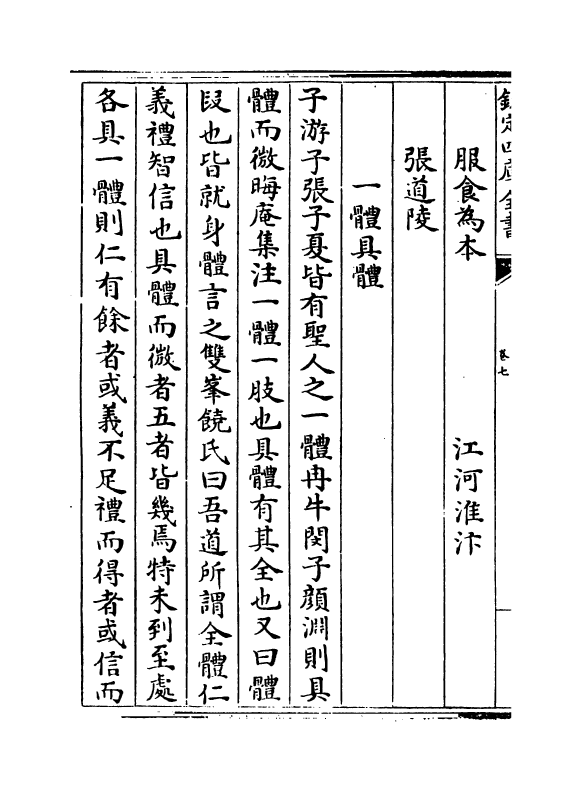 欽定四庫全書
卷七
服食為本　江河淮汴
張道陵
一體具體
子游子張子夏皆有聖人之一體冉牛閔子顔淵則具
體而微晦庵集注一體一肢也具體有其全也又曰體
段也皆就身體言之雙峯饒氏曰吾道所謂全體仁
義禮智信也具體而微者五者皆幾焉特未到至處
各具一體則仁有餘者或義不足禮而得者或信而